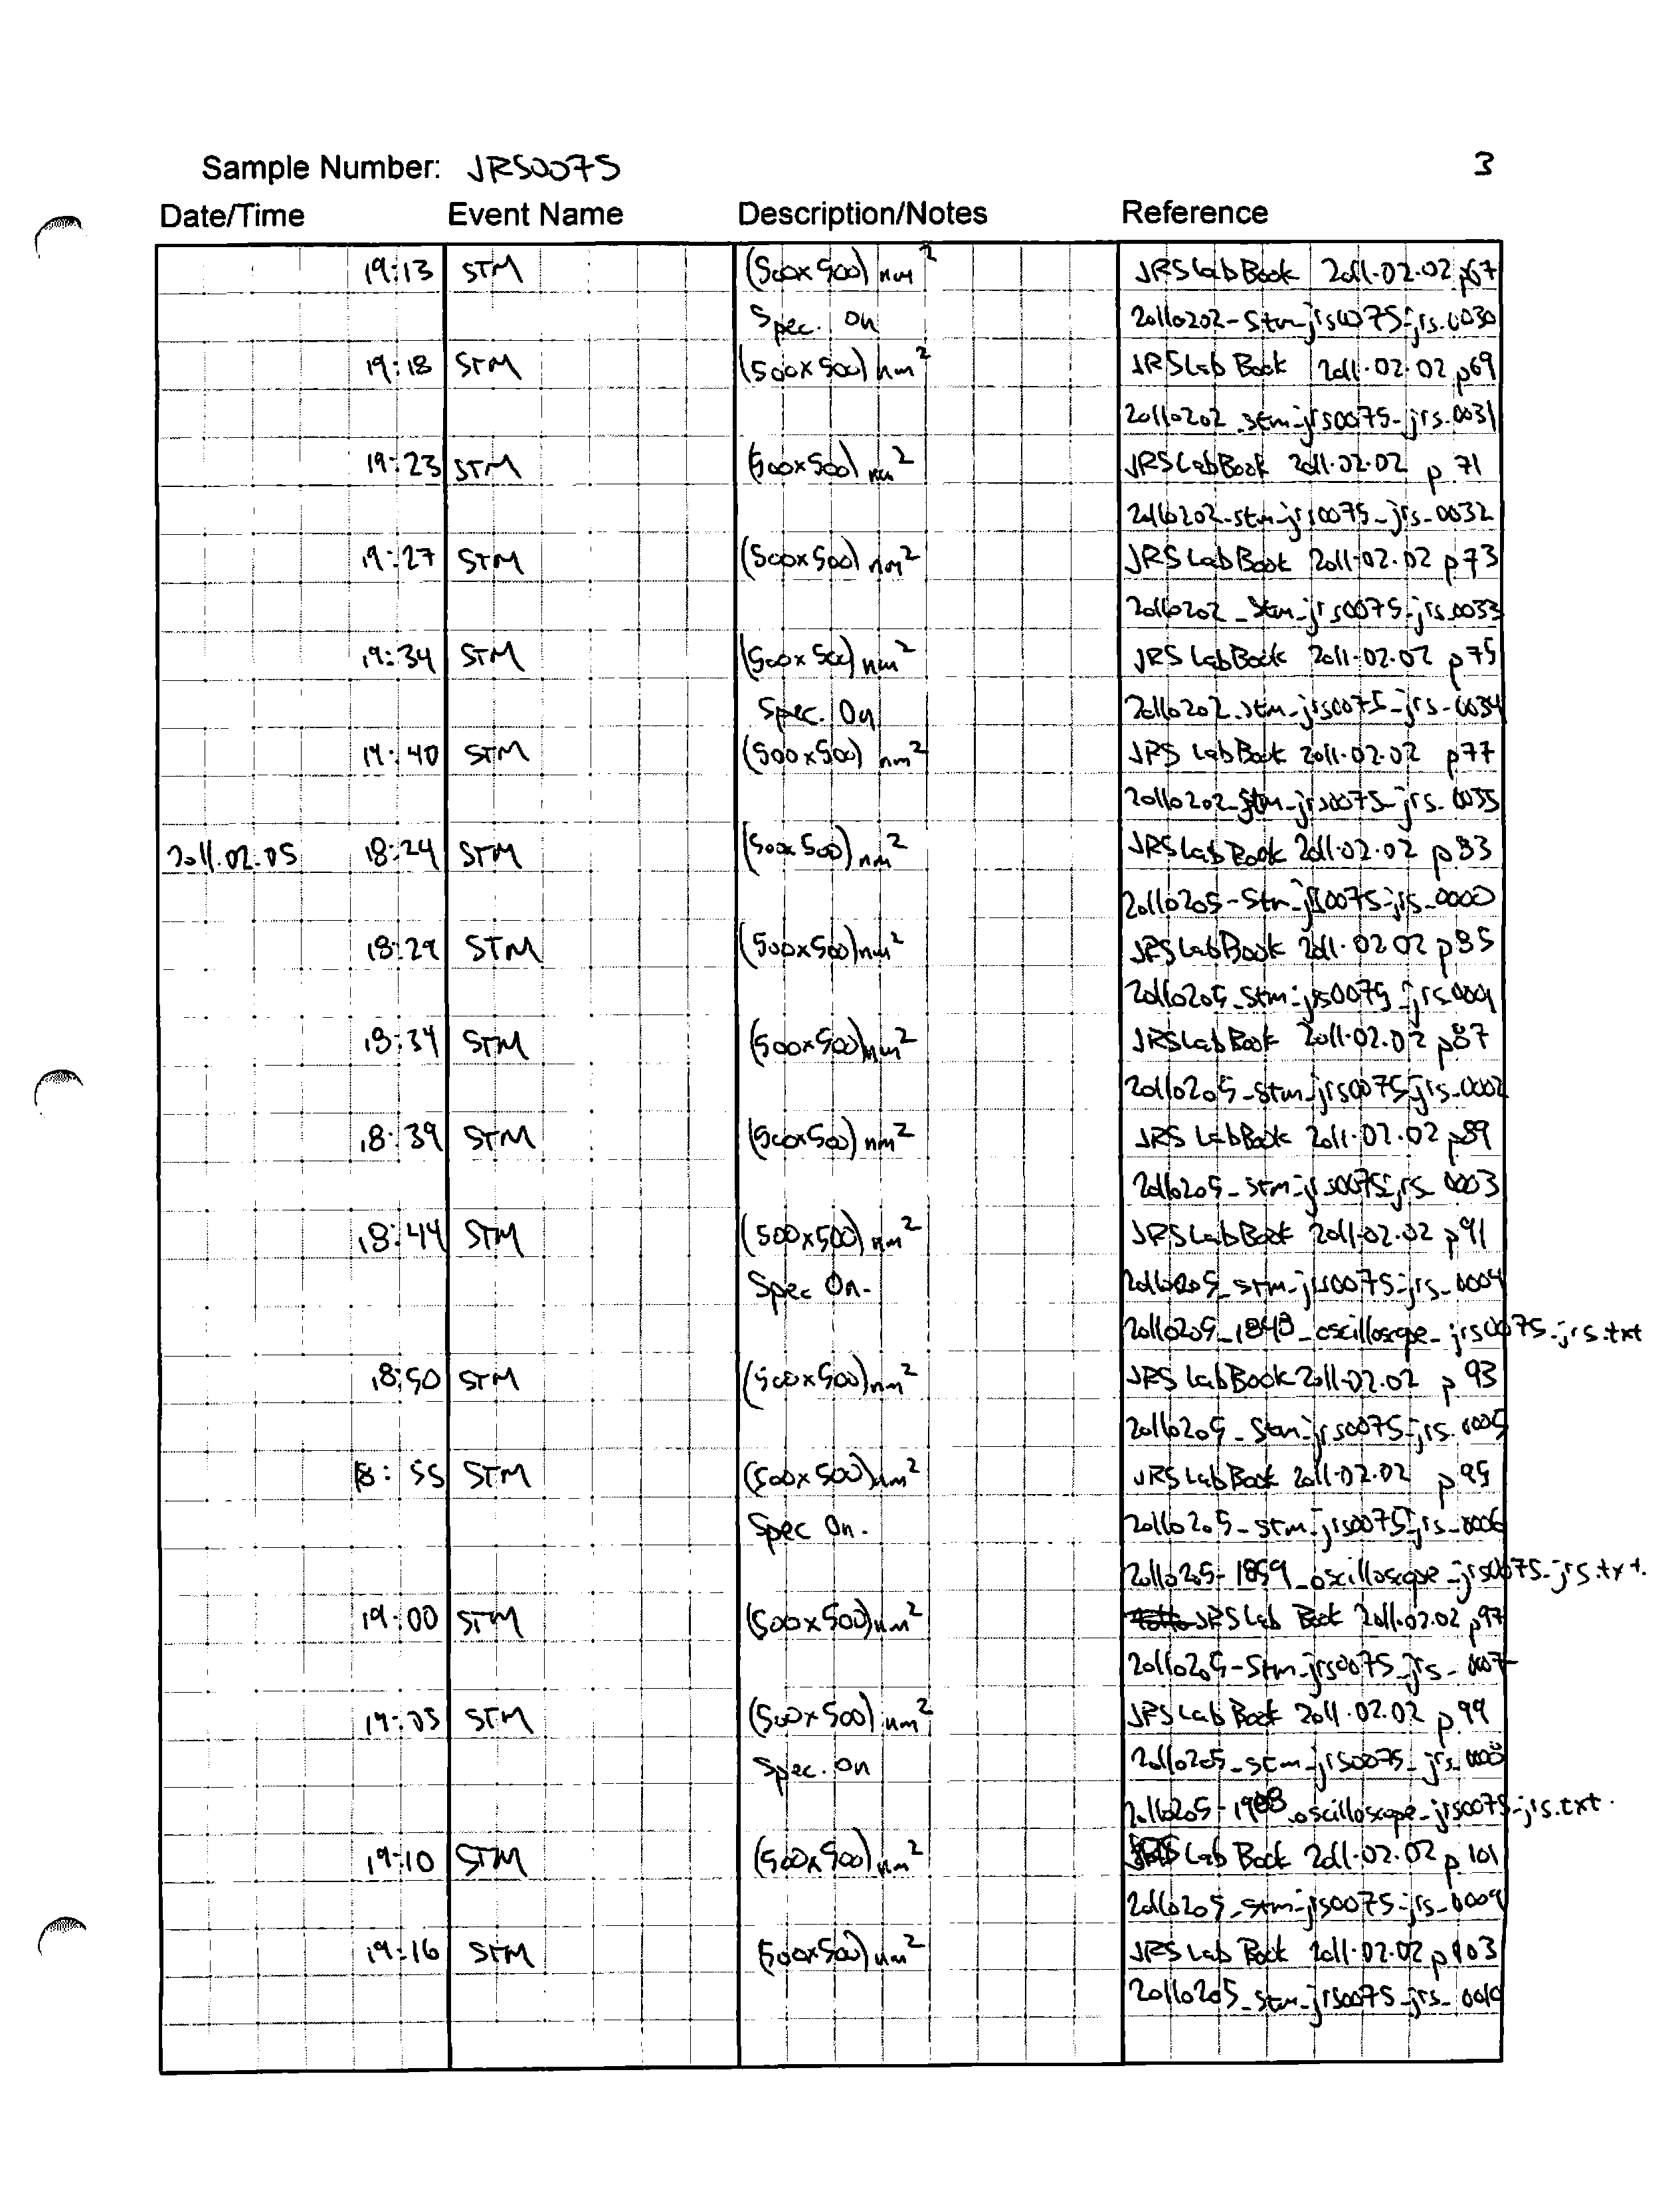 Sample Number: JRS0075 3
Date/Time Event Name Description/Notes Reference
19:13 STM (500x500) nm² JRS Lab Book 2011.02.02 p67
Spec. On 20110202-stm-jrs0075-jrs.0030
19:18 STM (500x500) nm² JRS Lab Book 2011.02.02 p69
20110202_stm-jrs0075-jrs.0031
19:23 STM (500x500) nm² JRS Lab Book 2011.02.02 p.71
20110202-stm-jrs0075_jrs_0032
19:27 STM (500x500) nm² JRS Lab Book 2011.02.02 p73
20110202_stm_jrs0075-jrs_0033
19:34 STM (500x500) nm² JRS Lab Book 2011.02.02 p75
Spec. On 20110202_stm_jrs0075_jrs_0034
19:40 STM (500x500) nm² JRS Lab Book 2011.02.02 p77
20110202_stm_jrs0075_jrs_0035
2011.02.05 18:24 STM (500x500) nm² JRS Lab Book 2011.02.02 p83
20110205-stm_jrs0075-jrs_0000
18:29 STM (500x500) nm² JRS Lab Book 2011.02.02 p85
20110205_stm_jrs0075_jrs_0001
18:34 STM (500x500) nm² JRS Lab Book 2011.02.02 p87
20110205_stm_jrs0075_jrs_0002
18:39 STM (500x500) nm² JRS Lab Book 2011.02.02 p89
20110205_stm_jrs0075_jrs_0003
18:44 STM (500x500) nm² JRS Lab Book 2011.02.02 p91
Spec On. 20110205_stm_jrs0075-jrs_0004
20110205_1848_oscilloscope_jrs0075_jrs.txt
18:50 STM (500x500) nm² JRS Lab Book 2011.02.02 p.93
20110205_stm_jrs0075-jrs_0005
18:55 STM (500x500) nm² JRS Lab Book 2011.02.02 p.95
Spec On. 20110205_stm_jrs0075_jrs_0006
20110205-1859_oscilloscope_jrs0075_jrs.txt.
19:00 STM (500x500) nm² JRS Lab Book 2011.02.02 p97
20110205-stm_jrs0075_jrs_0007
19:05 STM (500x500) nm² JRS Lab Book 2011.02.02 p.99
Spec. On 20110205_stm_jrs0075_jrs_0008
20110205-1908_oscilloscope_jrs0075-jrs.txt.
19:10 STM (500x500) nm² JRS Lab Book 2011.02.02 p.101
20110205_stm_jrs0075-jrs_0009
19:16 STM (500x500) nm² JRS Lab Book 2011.02.02 p103
20110205_stm_jrs0075_jrs_0010